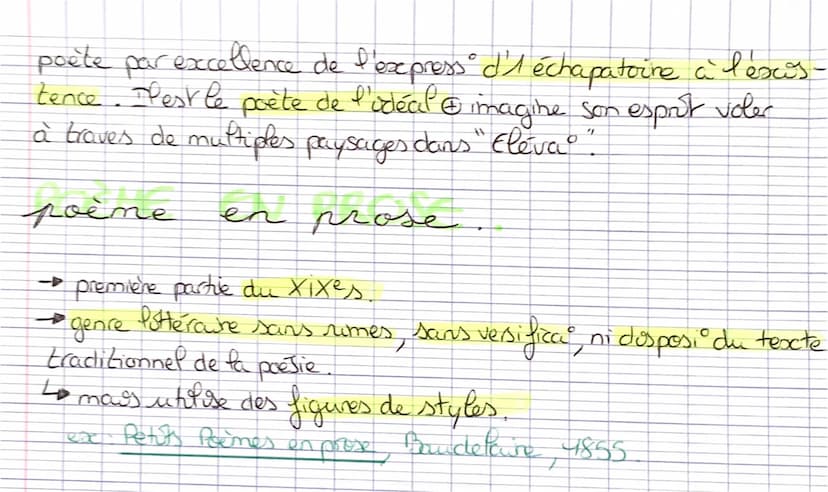 poète par excellence de l'express° d'1 échapatoire à l'exis-
tence. Il est le poète de l'idéal ⊕ imagine son esprit voler
à traves de multiples paysages dans "Eléva°".
poème en prose.
→ première partie du XIXe s.
→ genre littéraire sans rimes, sans versifica°, ni disposi° du texte
traditionnel de la poésie.
↳ mais utilise des figures de styles.
ex: Petits Poèmes en prose, Baudelaire, 1855